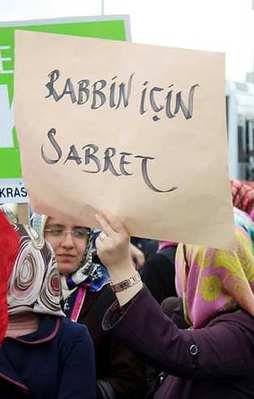 RABBİN İÇİN
SABRET
KRAS